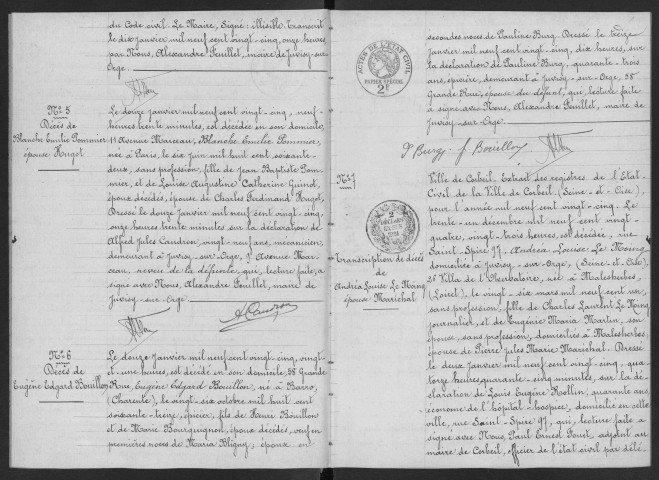 du Code civil. Le Maire, Signé: illisible. Transcrit
le dix janvier mil neuf cent vingt-cinq, onze heures,
par Nous, Alexandre Feuillet, maire de Juvisy-sur-
Orge.
N° 5
Décès de
Blanche Emilie Pommier
épouse Hugot
Le douze janvier mil neuf cent vingt-cinq, neuf
heures trente minutes, est décédée en son domicile,
11 Avenue Marceau, Blanche Emilie Pommier,
née à Paris, le six juin mil huit cent soixante-
deux, sans profession, fille de Jean Baptiste Pom-
mier, et de Louise Augustine Catherine Guinot,
époux décédés, épouse de Charles Ferdinand Hugot,
Dressé le douze janvier mil neuf cent vingt-cinq,
onze heures trente minutes sur la déclaration de
Alfred Jules Caudron, vingt-neuf ans, mécanicien,
demeurant à Juvisy-sur-Orge, Avenue Mar-
ceau, neveu de la défunte, qui, lecture faite, a
signé avec Nous, Alexandre Feuillet, maire de
Juvisy-sur-Orge.
N° 6
Décès de
Eugène Edgard Bouillon
Le douze janvier mil neuf cent vingt-cinq, vingt-
et-une heures, est décédé en son domicile, 58 Grande
Rue, Eugène Edgard Bouillon, né à Barro,
(Charente), le vingt-six octobre mil huit cent
soixante-treize, épicier, fils de Bouillon
et de Marie Bourguignon, époux décédés, veuf en
premières noces de Maria Bligny, époux en
secondes noces de Pauline Burg. Dressé le treize
janvier mil neuf cent vingt-cinq, dix heures, sur
la déclaration de Pauline Burg, quarante-trois
ans, épicière, demeurant à Juvisy-sur-Orge, 58
Grande Rue, épouse du défunt, qui, lecture faite
a signé avec Nous, Alexandre Feuillet, maire de
Juvisy-sur-Orge.
ACTES DE L'ETAT CIVIL
PAPIER SPÉCIAL
2F
P Burg: f Bouillon
N° 7
Transcription de décès
de
Andréa Louise Le Moing
épouse Marichal
Ville de Corbeil. Extrait des registres de l'Etat-
Civil de la Ville de Corbeil (Seine-et-Oise),
pour l'année mil neuf cent vingt-cinq. Le
trente-un décembre mil neuf cent vingt-
quatre, vingt-trois heures, est décédée, rue
Saint-Spire 57, Andréa Louise Le Moing
domiciliée à Juvisy-sur-Orge, (Seine-et-Oise),
Villa de l'Observatoire, née à Malesherbes
(Loiret), le vingt-six mars mil neuf cent un,
sans profession, fille de Charles Laurent Le Moing
journalier, et de Eugénie Maria Martin, son
épouse, sans profession, domiciliés à Malesherbes;
épouse de Pierre Jules Marie Marichal. Dressé
le deux janvier mil neuf cent vingt-cinq, qua-
torze heures quarante-cinq minutes, sur la dé-
claration de Louis Eugène, quarante ans,
économe de l'hôpital-hospice, domicilié en cette
ville, rue Saint-Spire 57, qui, lecture faite a
signé avec Nous, Paul Ernest, adjoint au
maire de Corbeil, officier de l'état civil par délé-